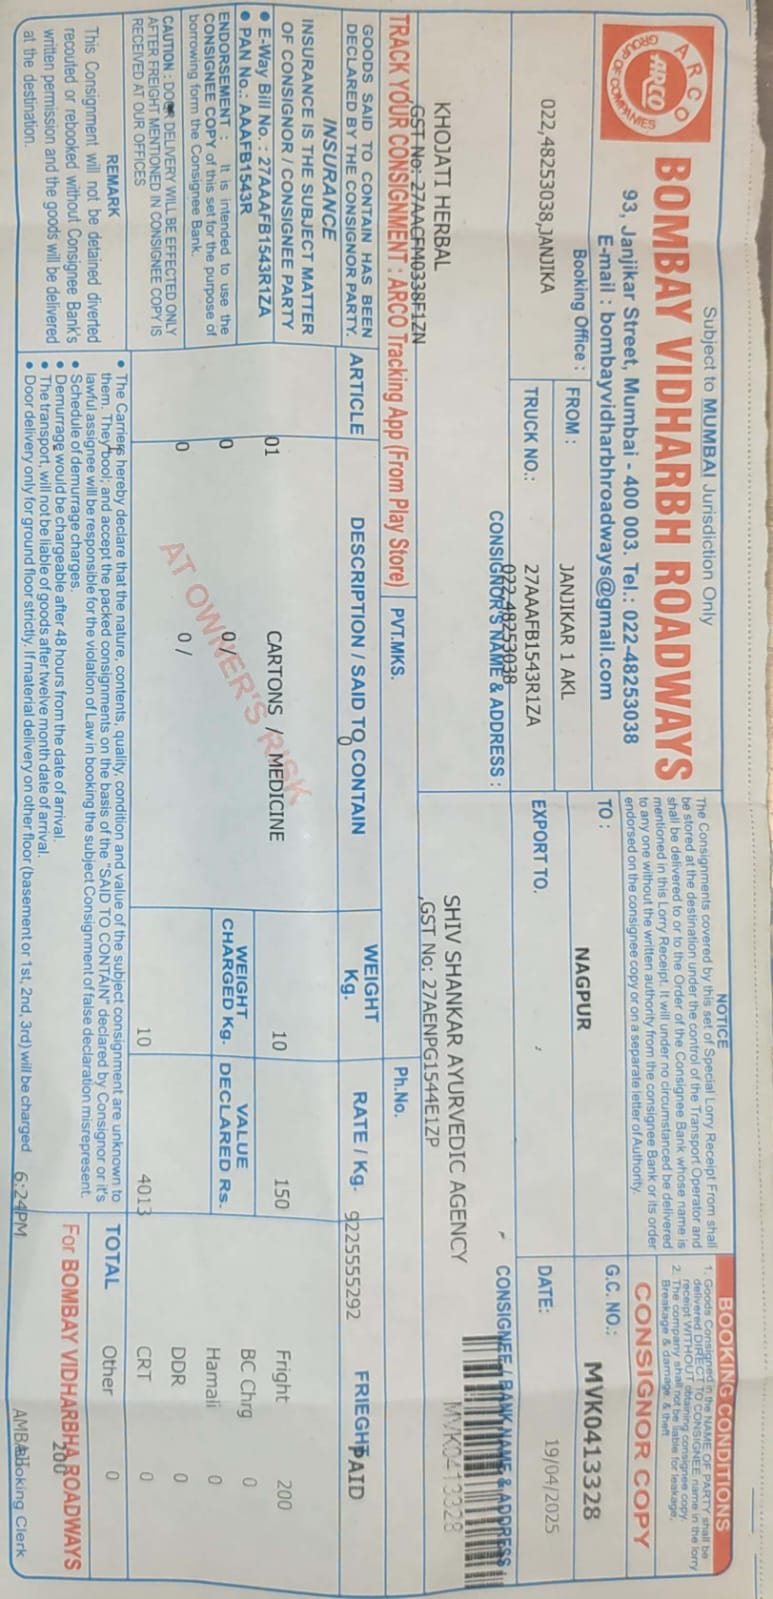 ARCO
ARCO
GROUP OF COMPANIES
Subject to MUMBAI Jurisdiction Only
BOMBAY VIDHARBH ROADWAYS
93, Janjikar Street, Mumbai - 400 003. Tel.: 022-48253038
E-mail : bombayvidharbhroadways@gmail.com
NOTICE
The Consignments covered by this set of Special Lorry Receipt From shall
be stored at the destination under the control of the Transport Operator and
shall be delivered to or to the Order of the Consignee Bank whose name is
mentioned in this Lorry Receipt. It will under no circumstanced be delivered
to any one without the written authority from the consignee Bank or its order
endorsed on the consignee copy or on a separate letter of Authority.
BOOKING CONDITIONS
1. Goods Consigned in the NAME OF PARTY shall be
delivered DIRECT TO CONSIGNEE name in the lorry
receipt WITHOUT obtaining consignee copy.
2. The company shall not be liable for leakage,
Breakage & damage & theft
CONSIGNOR COPY
Booking Office :
022,48253038,JANJIKA
FROM :
JANJIKAR 1 AKL
TO :
NAGPUR
G.C. NO.:
MVK0413328
TRUCK NO.:
27AAAFB1543R1ZA
EXPORT TO.
DATE:
19/04/2025
022,48253038
CONSIGNOR'S NAME & ADDRESS :
CONSIGNEE / BANK NAME & ADDRESS :
KHOJATI HERBAL
GST No: 27AACFM0338F1ZN
SHIV SHANKAR AYURVEDIC AGENCY
,GST No: 27AENPG1544E1ZP
MVK0413328
TRACK YOUR CONSIGNMENT : ARCO Tracking App (From Play Store)
PVT.MKS.
Ph.No.
9225555292
GOODS SAID TO CONTAIN HAS BEEN
DECLARED BY THE CONSIGNOR PARTY.
ARTICLE
DESCRIPTION / SAID TO CONTAIN
0
WEIGHT
Kg.
RATE / Kg.
FRIEGHT
PAID
INSURANCE
INSURANCE IS THE SUBJECT MATTER
OF CONSIGNOR / CONSIGNEE PARTY
• E-Way Bill No. : 27AAAFB1543R1ZA
• PAN No.: AAAFB1543R
ENDORSEMENT : It is intended to use the
CONSIGNEE COPY of this set for the purpose of
borrowing form the Consignee Bank.
CAUTION : DOOR DELIVERY WILL BE EFFECTED ONLY
AFTER FREIGHT MENTIONED IN CONSIGNEE COPY IS
RECEIVED AT OUR OFFICES
REMARK
This Consignment will not be detained diverted
recouted or rebooked without Consignee Bank's
written permission and the goods will be delivered
at the destination.
01 CARTONS / MEDICINE 10 150 Fright 200
BC Chrg 0
0 0 / Hamali 0
0 0 / DDR 0
AT OWNER'S RISK
WEIGHT
CHARGED Kg.
VALUE
DECLARED Rs.
10 4013 CRT 0
• The Carriers hereby declare that the nature, contents, quality, condition and value of the subject consignment are unknown to
them. They bool; and accept the packed consignments on the basis of the "SAID TO CONTAIN" declared by Consignor or it's
lawful assignee will be responsible for the violation of Law in booking the subject Consignment of false declaration misrepresent.
• Schedule of demurrage charges.
• Demurrage would be chargeable after 48 hours from the date of arrival.
• The transport, will not be liable of goods after twelve month date of arrival.
• Door delivery only for ground floor strictly. If material delivery on other floor (basement or 1st, 2nd, 3rd) will be charged
TOTAL
Other 0
For BOMBAY VIDHARBHA ROADWAYS
200
6:24PM
Booking Clerk